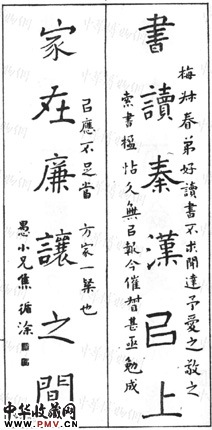 梅叔春弟好讀書不求聞達予愛之敬之
書讀秦漢㠯上
索書楹帖久無㠯報今催督甚亟勉成
㠯應不足當 方家一粲也
家在廉讓之間
愚小兄焦循塗
中华收藏网
www.PMV.CN